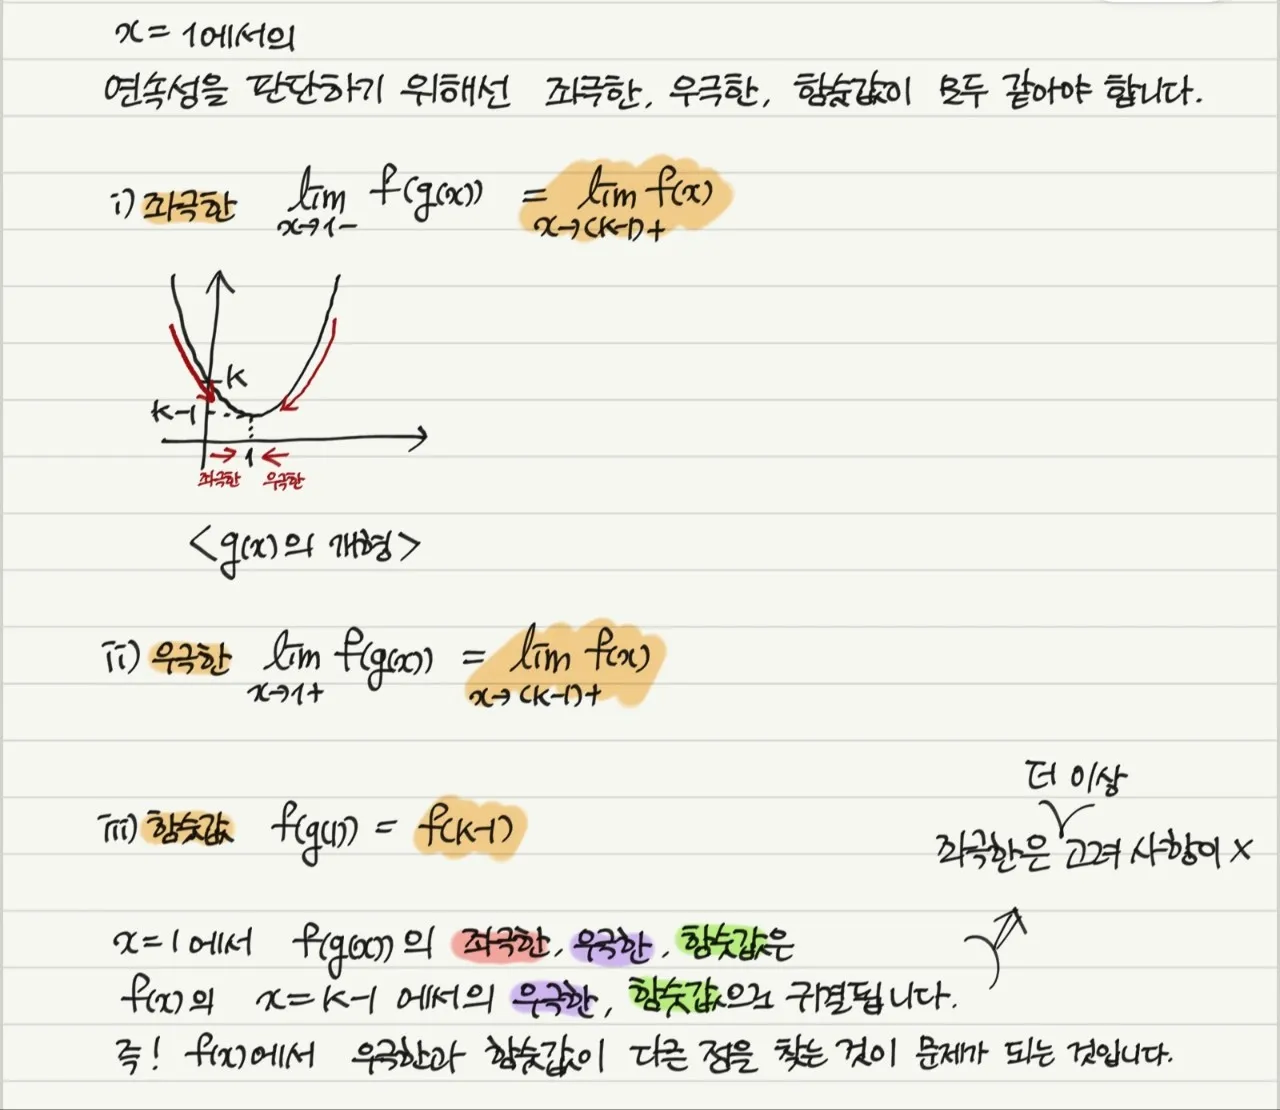 x = 1에서의
연속성을 판단하기 위해선 좌극한, 우극한, 함숫값이 모두 같아야 합니다.
i) 좌극한 lim f(g(x)) = lim f(x)
x→1- x→(k-1)+
k
k-1
1
좌극한 우극한
<g(x)의 개형>
ii) 우극한 lim f(g(x)) = lim f(x)
x→1+ x→(k-1)+
iii) 함숫값 f(g(1)) = f(k-1)
더 이상
좌극한은 고려 사항이 X
x=1에서 f(g(x))의 좌극한, 우극한, 함숫값은
f(x)의 x=k-1 에서의 우극한, 함숫값으로 귀결됩니다.
즉! f(x)에서 우극한과 함숫값이 다른 점을 찾는 것이 문제가 되는 것입니다.